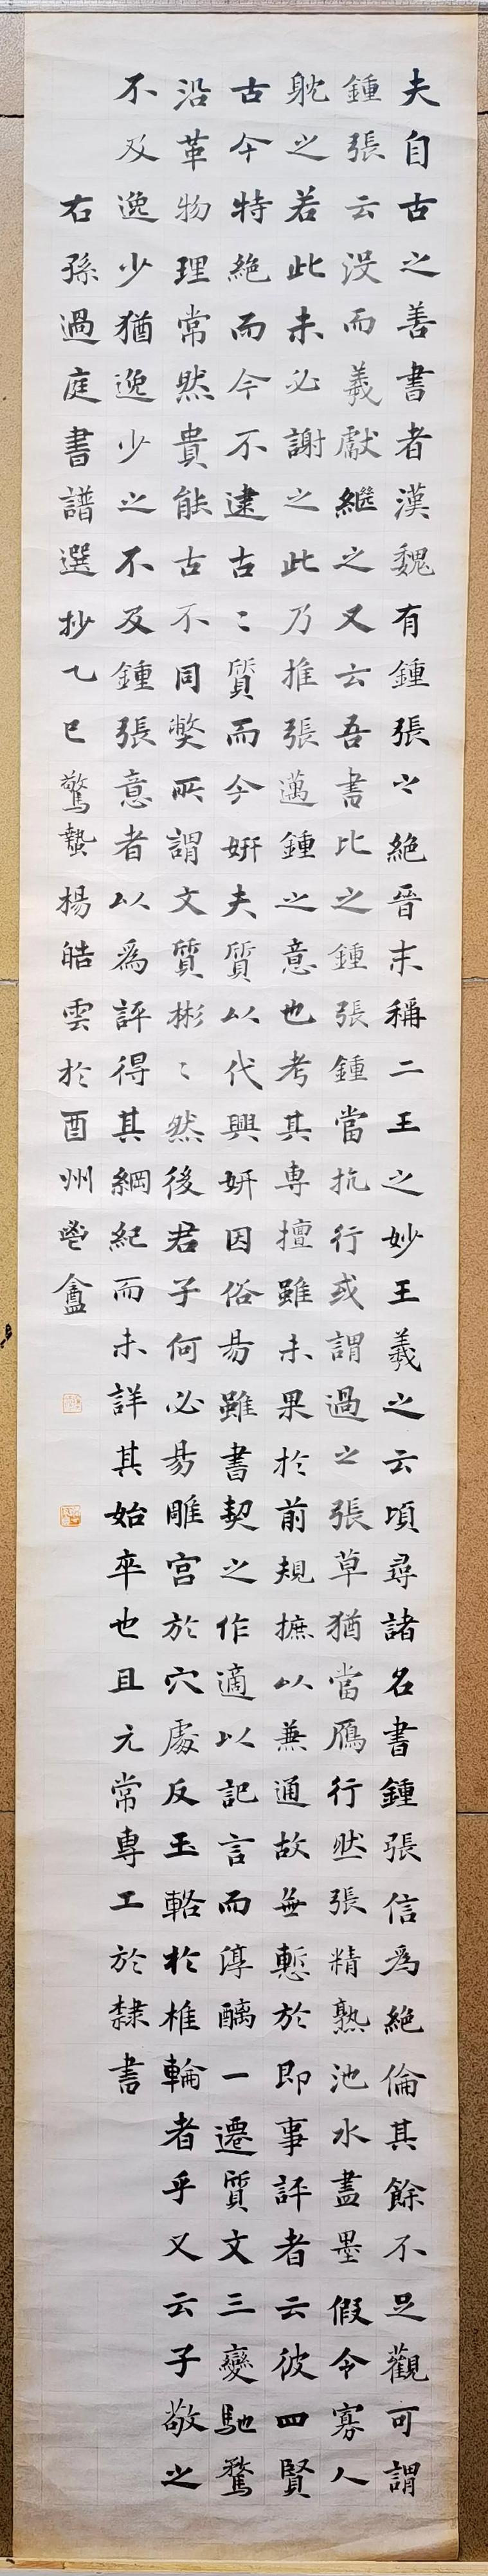 夫自古之善書者漢魏有鍾張之絕晉末稱二王之妙王羲之云頃尋諸名書鍾張信為絕倫其餘不足觀可謂
鍾張云沒而羲獻繼之又云吾書比之鍾張鍾當抗行或謂過之張草猶當鴈行然張精熟池水盡墨假令寡人
躭之若此未必謝之此乃推張邁鍾之意也考其專擅雖未果於前規摭以兼通故無慙於即事評者云彼四賢
古今特絕而今不逮古〻質而今妍夫質以代興妍因俗易雖書契之作適以記言而淳醨一遷質文三變馳騖
沿革物理常然貴能古不同獘所謂文質彬〻然後君子何必易雕宮於穴處反玉輅於椎輪者乎又云子敬之
不及逸少猶逸少之不及鍾張意者以為評得其綱紀而未詳其始卒也且元常專工於隸書
右孫過庭書譜選抄乙巳驚蟄楊皓雲於酉州龕